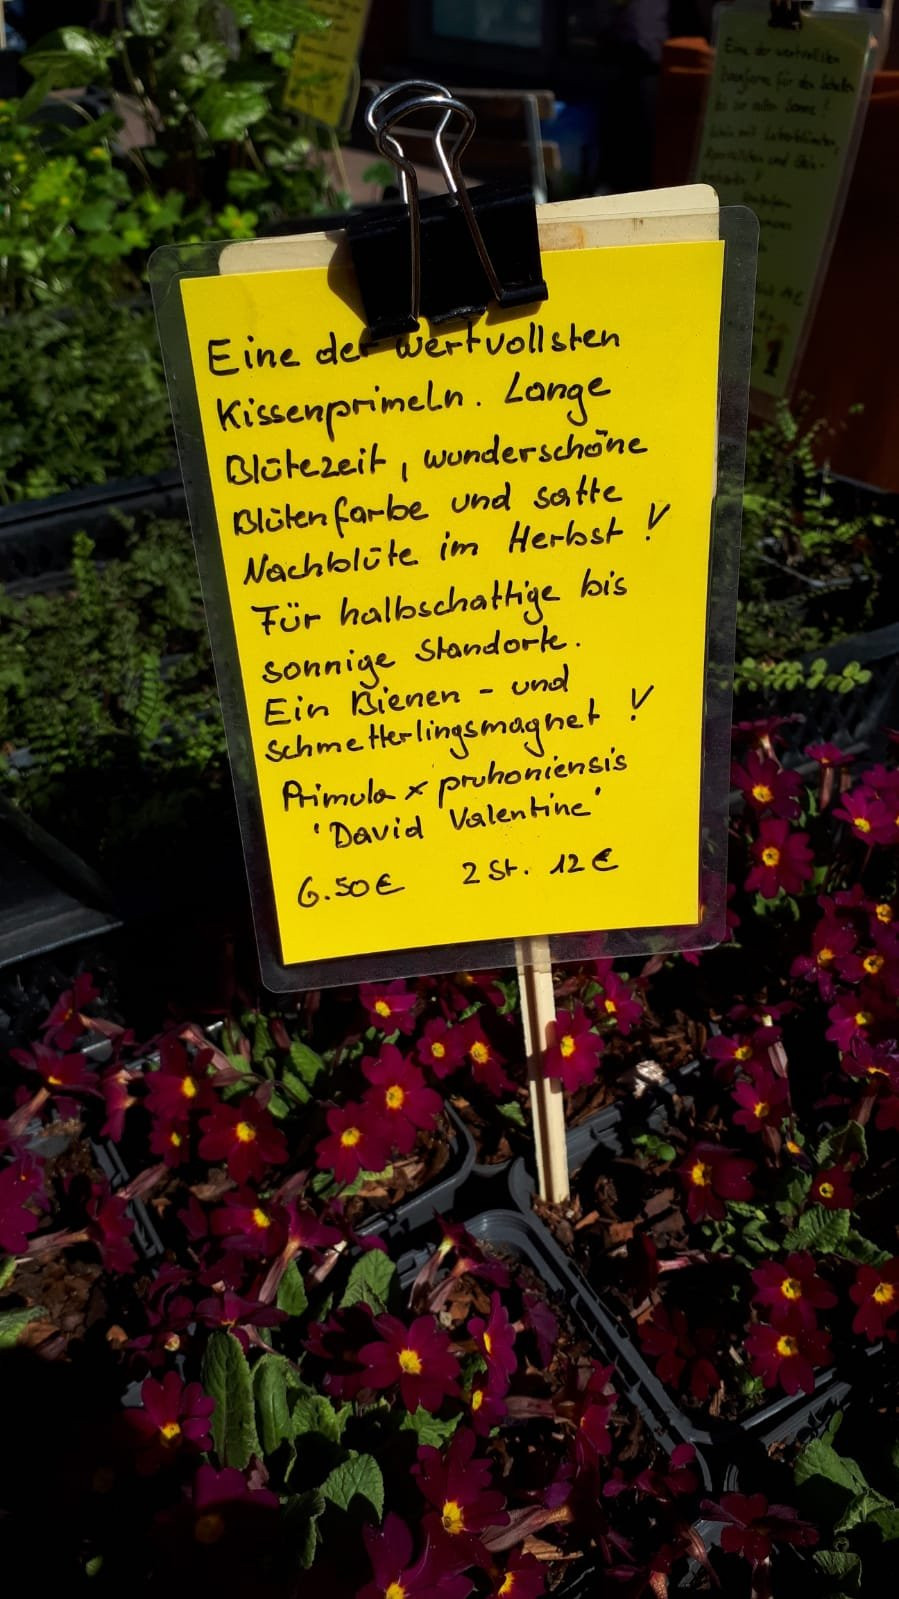 Eine der wertvollsten
Kissenprimeln. Lange
Blütezeit, wunderschöne
Blütenfarbe und satte
Nachblüte im Herbst !
Für halbschattige bis
sonnige Standorte.
Ein Bienen - und
Schmetterlingsmagnet !
Primula x pruhoniensis
'David Valentine'
6.50€ 2 St. 12€
Eine der wertvollsten
für den Schatten